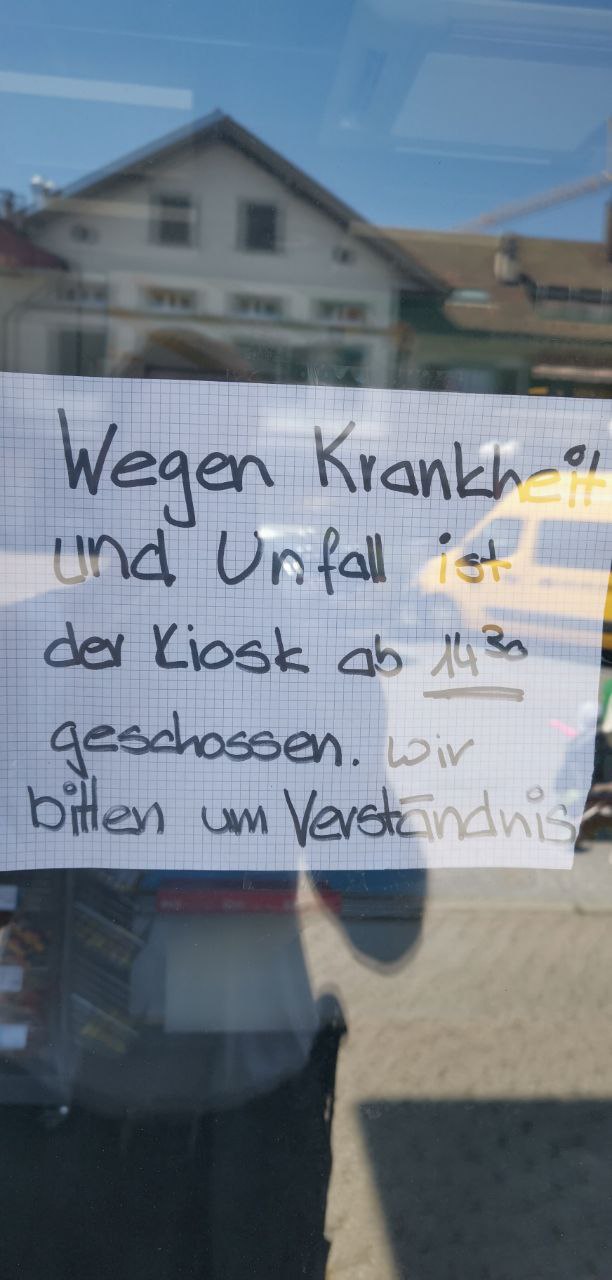 Wegen Krankheit
und Unfall ist
der Kiosk ab 14³⁰
geschossen. Wir
bitten um Verständnis